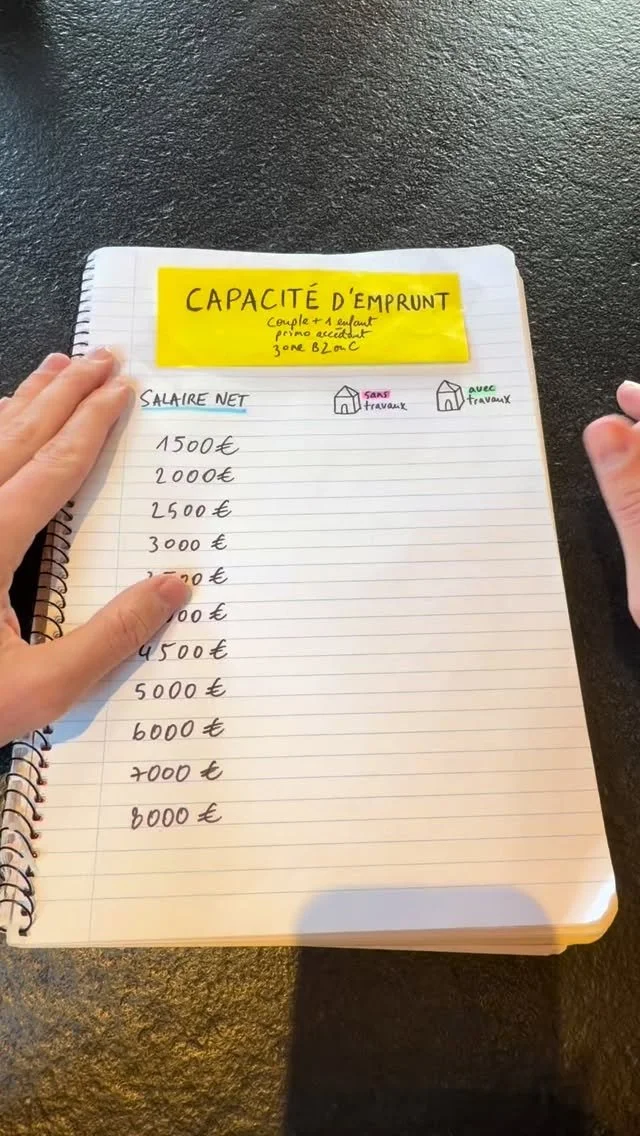 CAPACITÉ D'EMPRUNT
couple + 1 enfant
primo accédant
zone B2 ou C
SALAIRE NET
sans travaux
avec travaux
1500 €
2000 €
2500 €
3000 €
00 €
000 €
4500 €
5000 €
6000 €
7000 €
8000 €